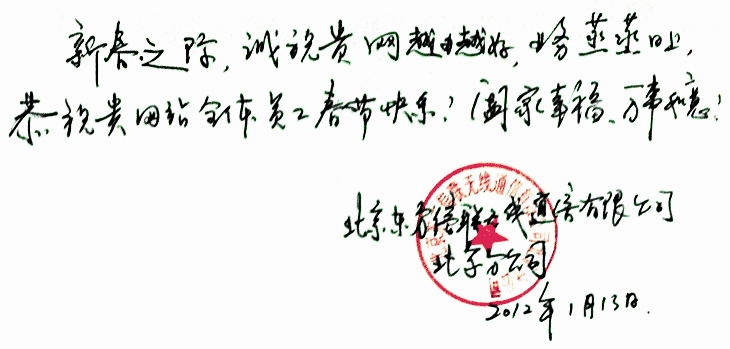 新春之际，诚祝贵网越办越好，业务蒸蒸日上，
恭祝贵网站全体员工春节快乐！阖家幸福、万事如意！
北京东方信联无线通信有限公司
北京分公司
2012年1月13日.